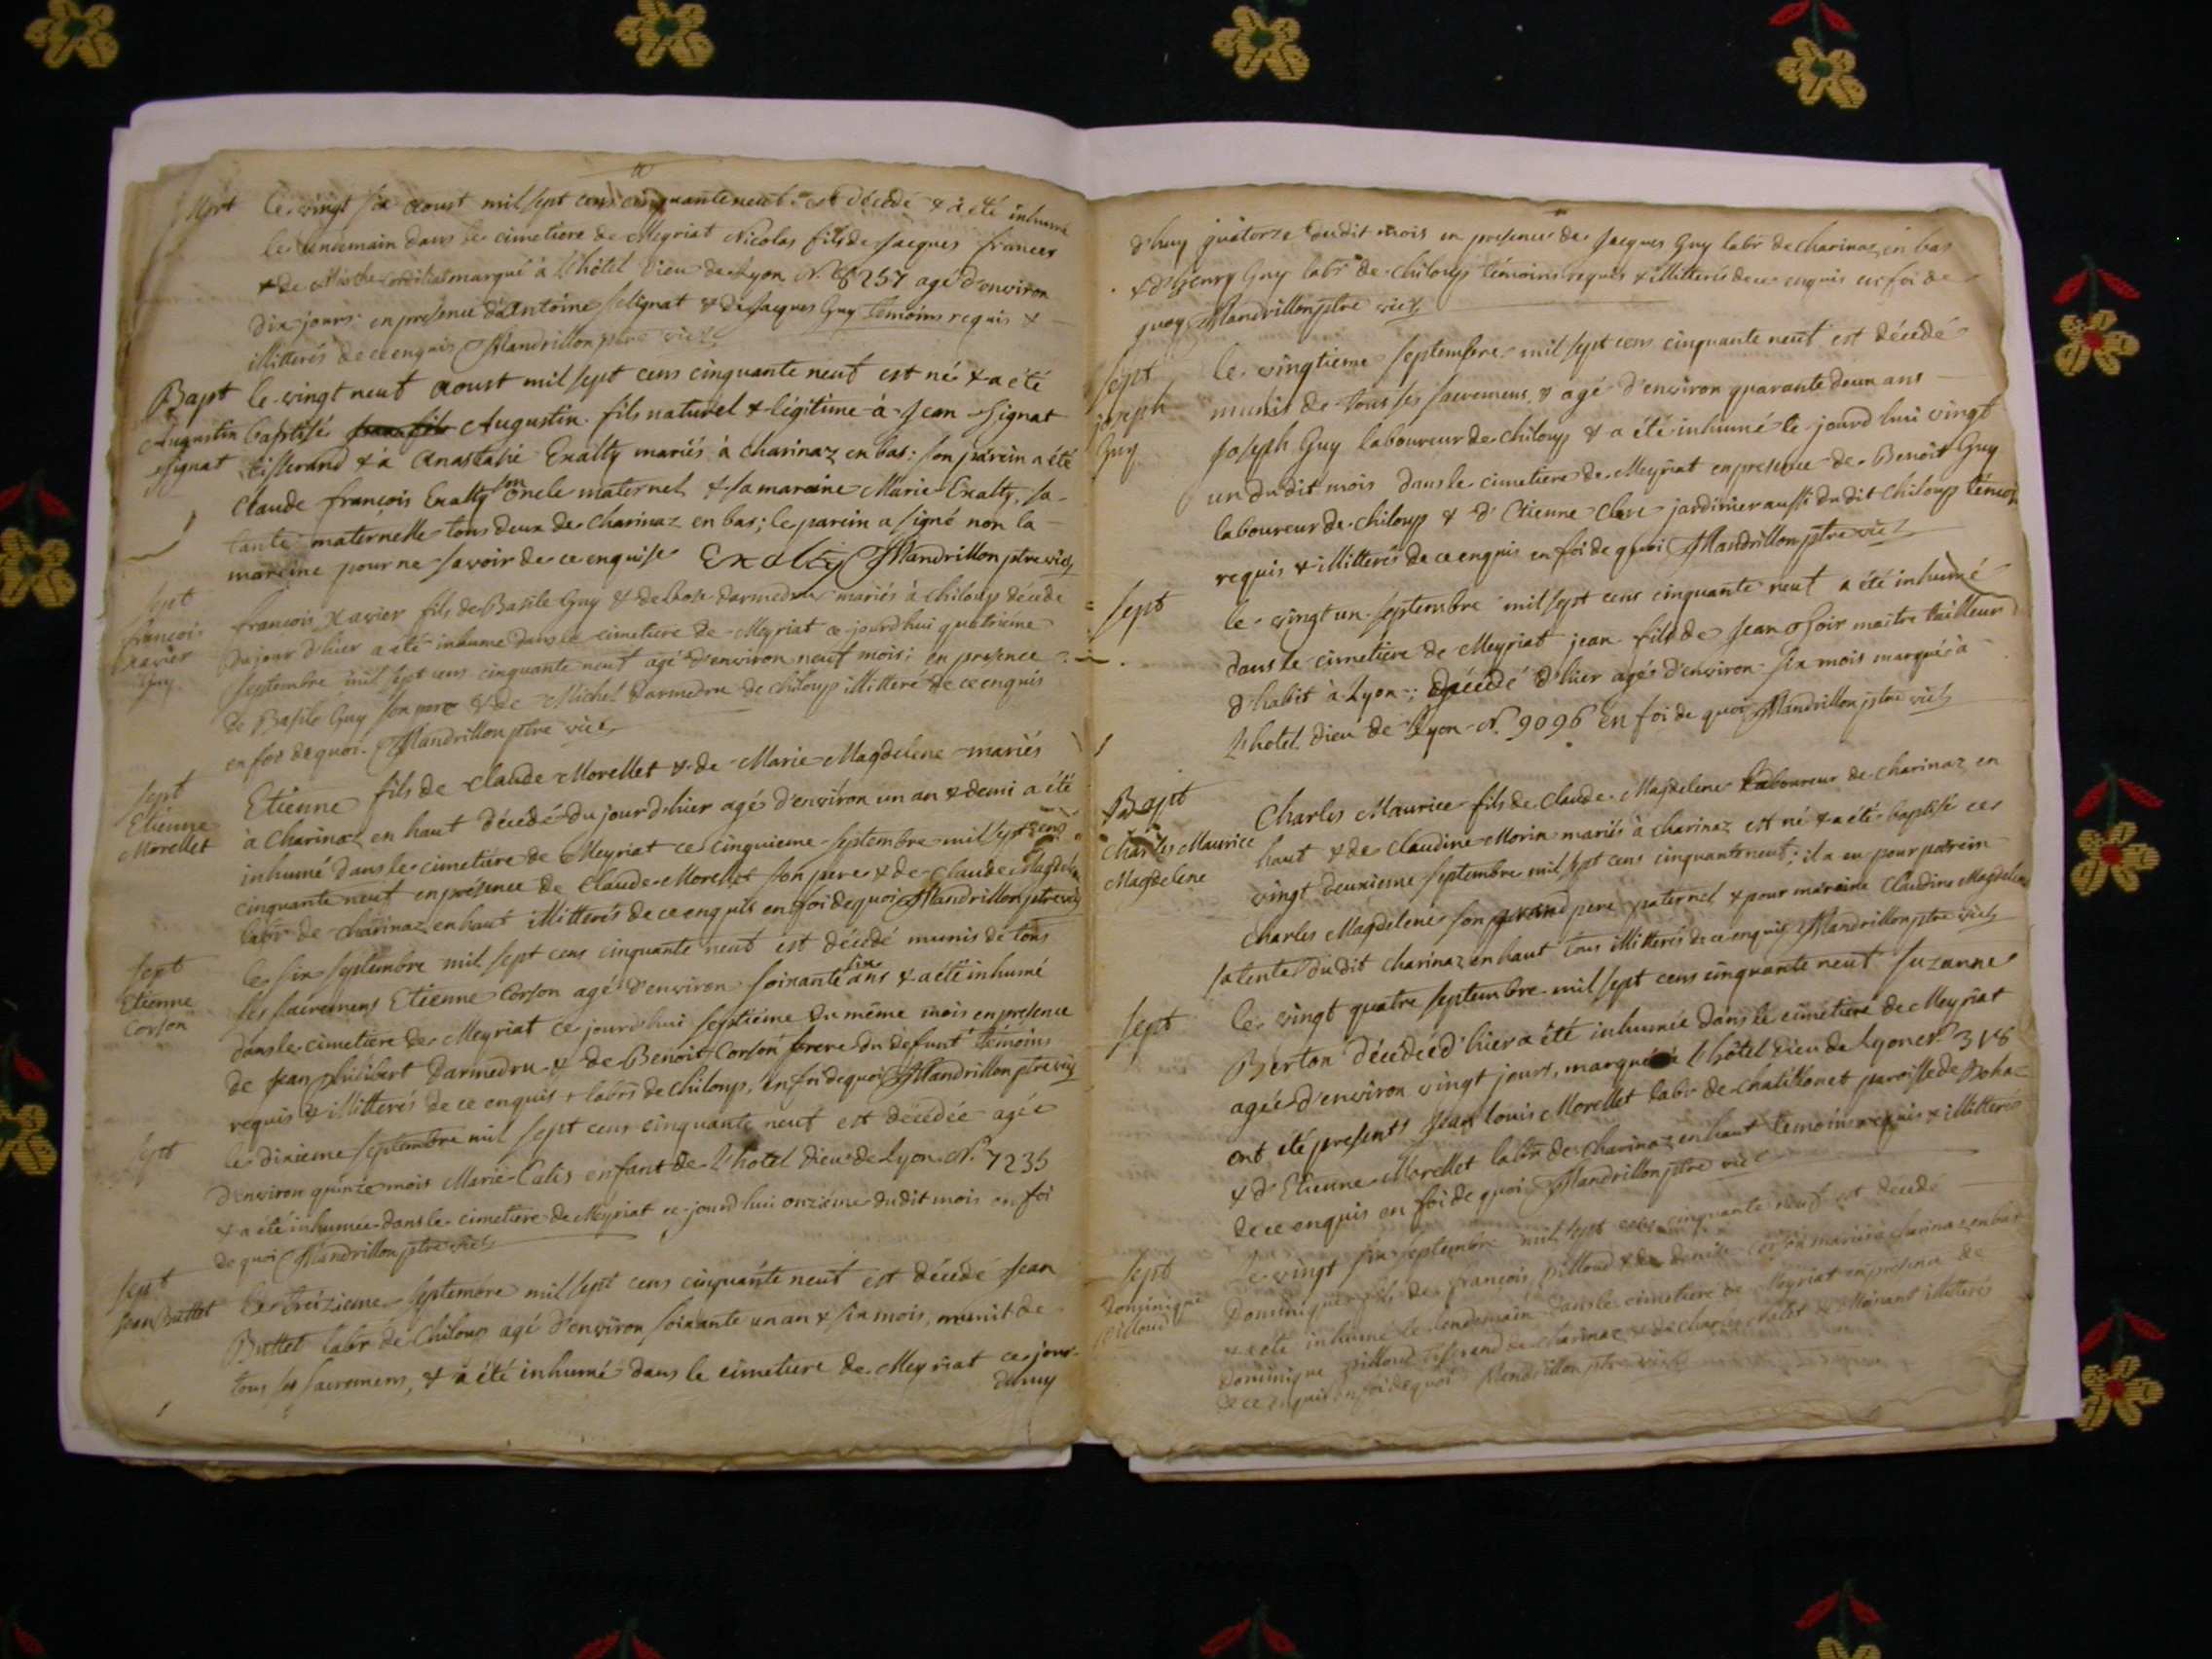 Sept
le vingt six aoust mil sept cens cinquante neuf est décédé & a été inhumé
le lendemain dans le cimetiere de Meyriat Nicolas fils de Jacques frances
& de marqué à l'hôtel Dieu de Lyon N.° 8257 agé d'environ
dix jours: en presence d'Antoine Selignat & de Jacques Guy témoins requis &
illitterés de ce enquis Mandrillon ptre vice
Bapt
Augustin
Signat
le vingt neuf aoust mil sept cens cinquante neuf est né & a été
baptisé Augustin fils naturel & légitime à Jean Signat
tisserand & à Anastasie Exalty mariés à charinaz en bas: son parein a été
Claude françois Exalty son oncle maternel & sa mareine Marie Exalty, sa
tante maternelle tous deux de Charinaz en bas; le parein a signé non la
mareine pour ne savoir de ce enquise Exalty Mandrillon ptre vice
Sept
françois
xavier
Guy
françois Xavier fils de Basile Guy & de darmedru mariés à chiloup décédé
du jour d'hier a été inhumé dans le cimetiere de Meyriat ce jourd'hui quatrieme
septembre mil sept cens cinquante neuf agé d'environ neuf mois; en presence
de Basile Guy son pere & de Michel Darmedru de chiloup illitteré de ce enquis
en foi de quoi Mandrillon ptre vice
Sept
Etienne
Morellet
Etienne fils de Claude Morellet & de Marie Magdelene mariés
à Charinaz en haut décédé du jour d'hier agé d'environ un an & demi a été
inhumé dans le cimetiere de Meyriat ce cinquieme septembre mil sept cens
cinquante neuf en présence de Claude Morellet son pere & de Claude Magdelene
labr de charinaz en haut illitterés de ce enquis en foi de quoi Mandrillon ptre vice
Sept
Etienne
Corson
le six septembre mil sept cens cinquante neuf est décédé munis de tous
ses sacremens Etienne Corson agé d'environ soixante six ans & a été inhumé
dans le cimetiere de Meyriat ce jourd'hui septième du même mois en presence
de Jean philibert Darmedru & de Benoit Corson frere du defunt témoins
requis & illitterés de ce enquis & labrs de chiloup, en foi de quoi Mandrillon ptre vice
Sept
le dixieme septembre mil sept cens cinquante neuf est décédée agée
d'environ quinze mois Marie Calis enfant de l'hotel dieu de Lyon N.° 7235
& a été inhumée dans le cimetiere de Meyriat ce jourd'hui onzieme du dit mois en foi
de quoi Mandrillon ptre vice
Sept
Jean Buttet
le treizieme septembre mil sept cens cinquante neuf est décédé Jean
Buttet labr de Chiloup agé d'environ soixante un an & six mois, munit de
tous ses sacremens, & a été inhumé dans le cimetiere de Meyriat ce jour-
d'huy
d'huy quatorze dudit mois en presence de Jacques Guy labr de charinaz en bas
& d'henry Guy labr de chiloup témoins requis & illitterés de ce enquis en foi de
quoy Mandrillon ptre vice
Sept
joseph
Guy
le vingtieme septembre mil sept cens cinquante neuf est décédé
munis de tous ses sacremens, & agé d'environ quarante deux ans
Joseph Guy laboureur de chiloup & a été inhumé le jourd'hui vingt
un du dit mois dans le cimetiere de Meyriat en presence de Benoit Guy
laboureur de chiloup & d'Etienne Clerc jardinier aussi du dit chiloup témoins
requis & illitterés de ce enquis en foi de quoi Mandrillon ptre vice
Sept
le vingt un septembre mil sept cens cinquante neuf a été inhumé
dans le cimetiere de Meyriat jean fils de Jean maitre tailleur
d'habit à Lyon; décédé d'hier agé d'environ six mois marqué à
l'hotel dieu de Lyon N.° 9096 en foi de quoi Mandrillon ptre vice
Bapt
Charles Maurice
Magdelene
Charles Maurice fils de Claude Magdelene laboureur de charinaz en
haut & de claudine Morin mariés à charinaz est né & a été baptisé ce
vingt deuxieme septembre mil sept cens cinquante neuf; il a eu pour parein
Charles Magdelene son grand pere paternel & pour mareine Claudine Magdelene
sa tente du dit charinaz en haut tous illitterés de ce enquis Mandrillon ptre vice
Sept
le vingt quatre septembre mil sept cens cinquante neuf Suzanne
Berton décédée d'hier a été inhumée dans le cimetiere de Meyriat
agée d'environ vingt jours, marquée à l'hôtel dieu de Lyon N.° 318
ont été presents Jean louis Morellet labr de chatillonet paroisse de Bohaz
& d'Etienne Morellet labr de charinaz en haut temoins requis & illitterés
de ce enquis en foi de quoi Mandrillon ptre vice
Sept
Dominique
pilloud
Le vingt six septembre mil sept cens cinquante neuf est décédé
Dominique fils de françois pilloud & de denise mariés à charinaz en bas
& a été inhumé le lendemain dans le cimetiere de Meyriat en presence de
Dominique pilloud tisserand de charinaz & de charles illitterés
de ce enquis en foi de quoi Mandrillon ptre vice